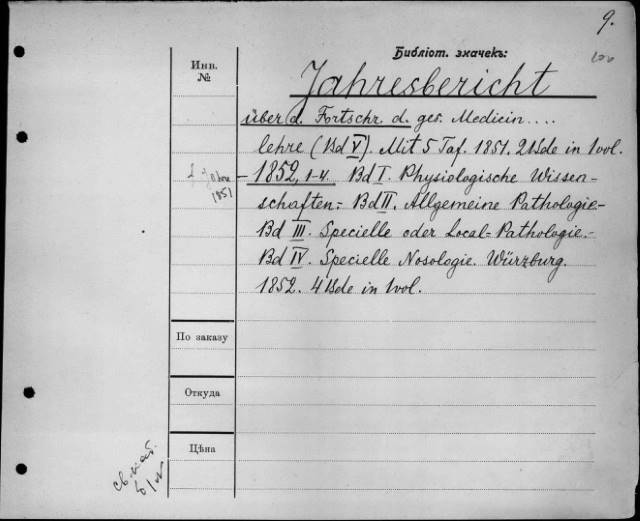 9.
Библіот. значекъ:
Инв.
№
Jahresbericht
über d. Fortschr. d. ges. Medicin....
lehre (Bd V). Mit 5 Taf. 1851. 2 Bde in 1 vol.
f. Jahre
1851
– 1852, 1-4. Bd I. Physiologische Wissen-
schaften.- Bd II. Allgemeine Pathologie.-
Bd III. Specielle oder Local-Pathologie.-
Bd IV. Specielle Nosologie. Würzburg.
1852. 4 Bde in 1 vol.
По заказу
Откуда
Цѣна